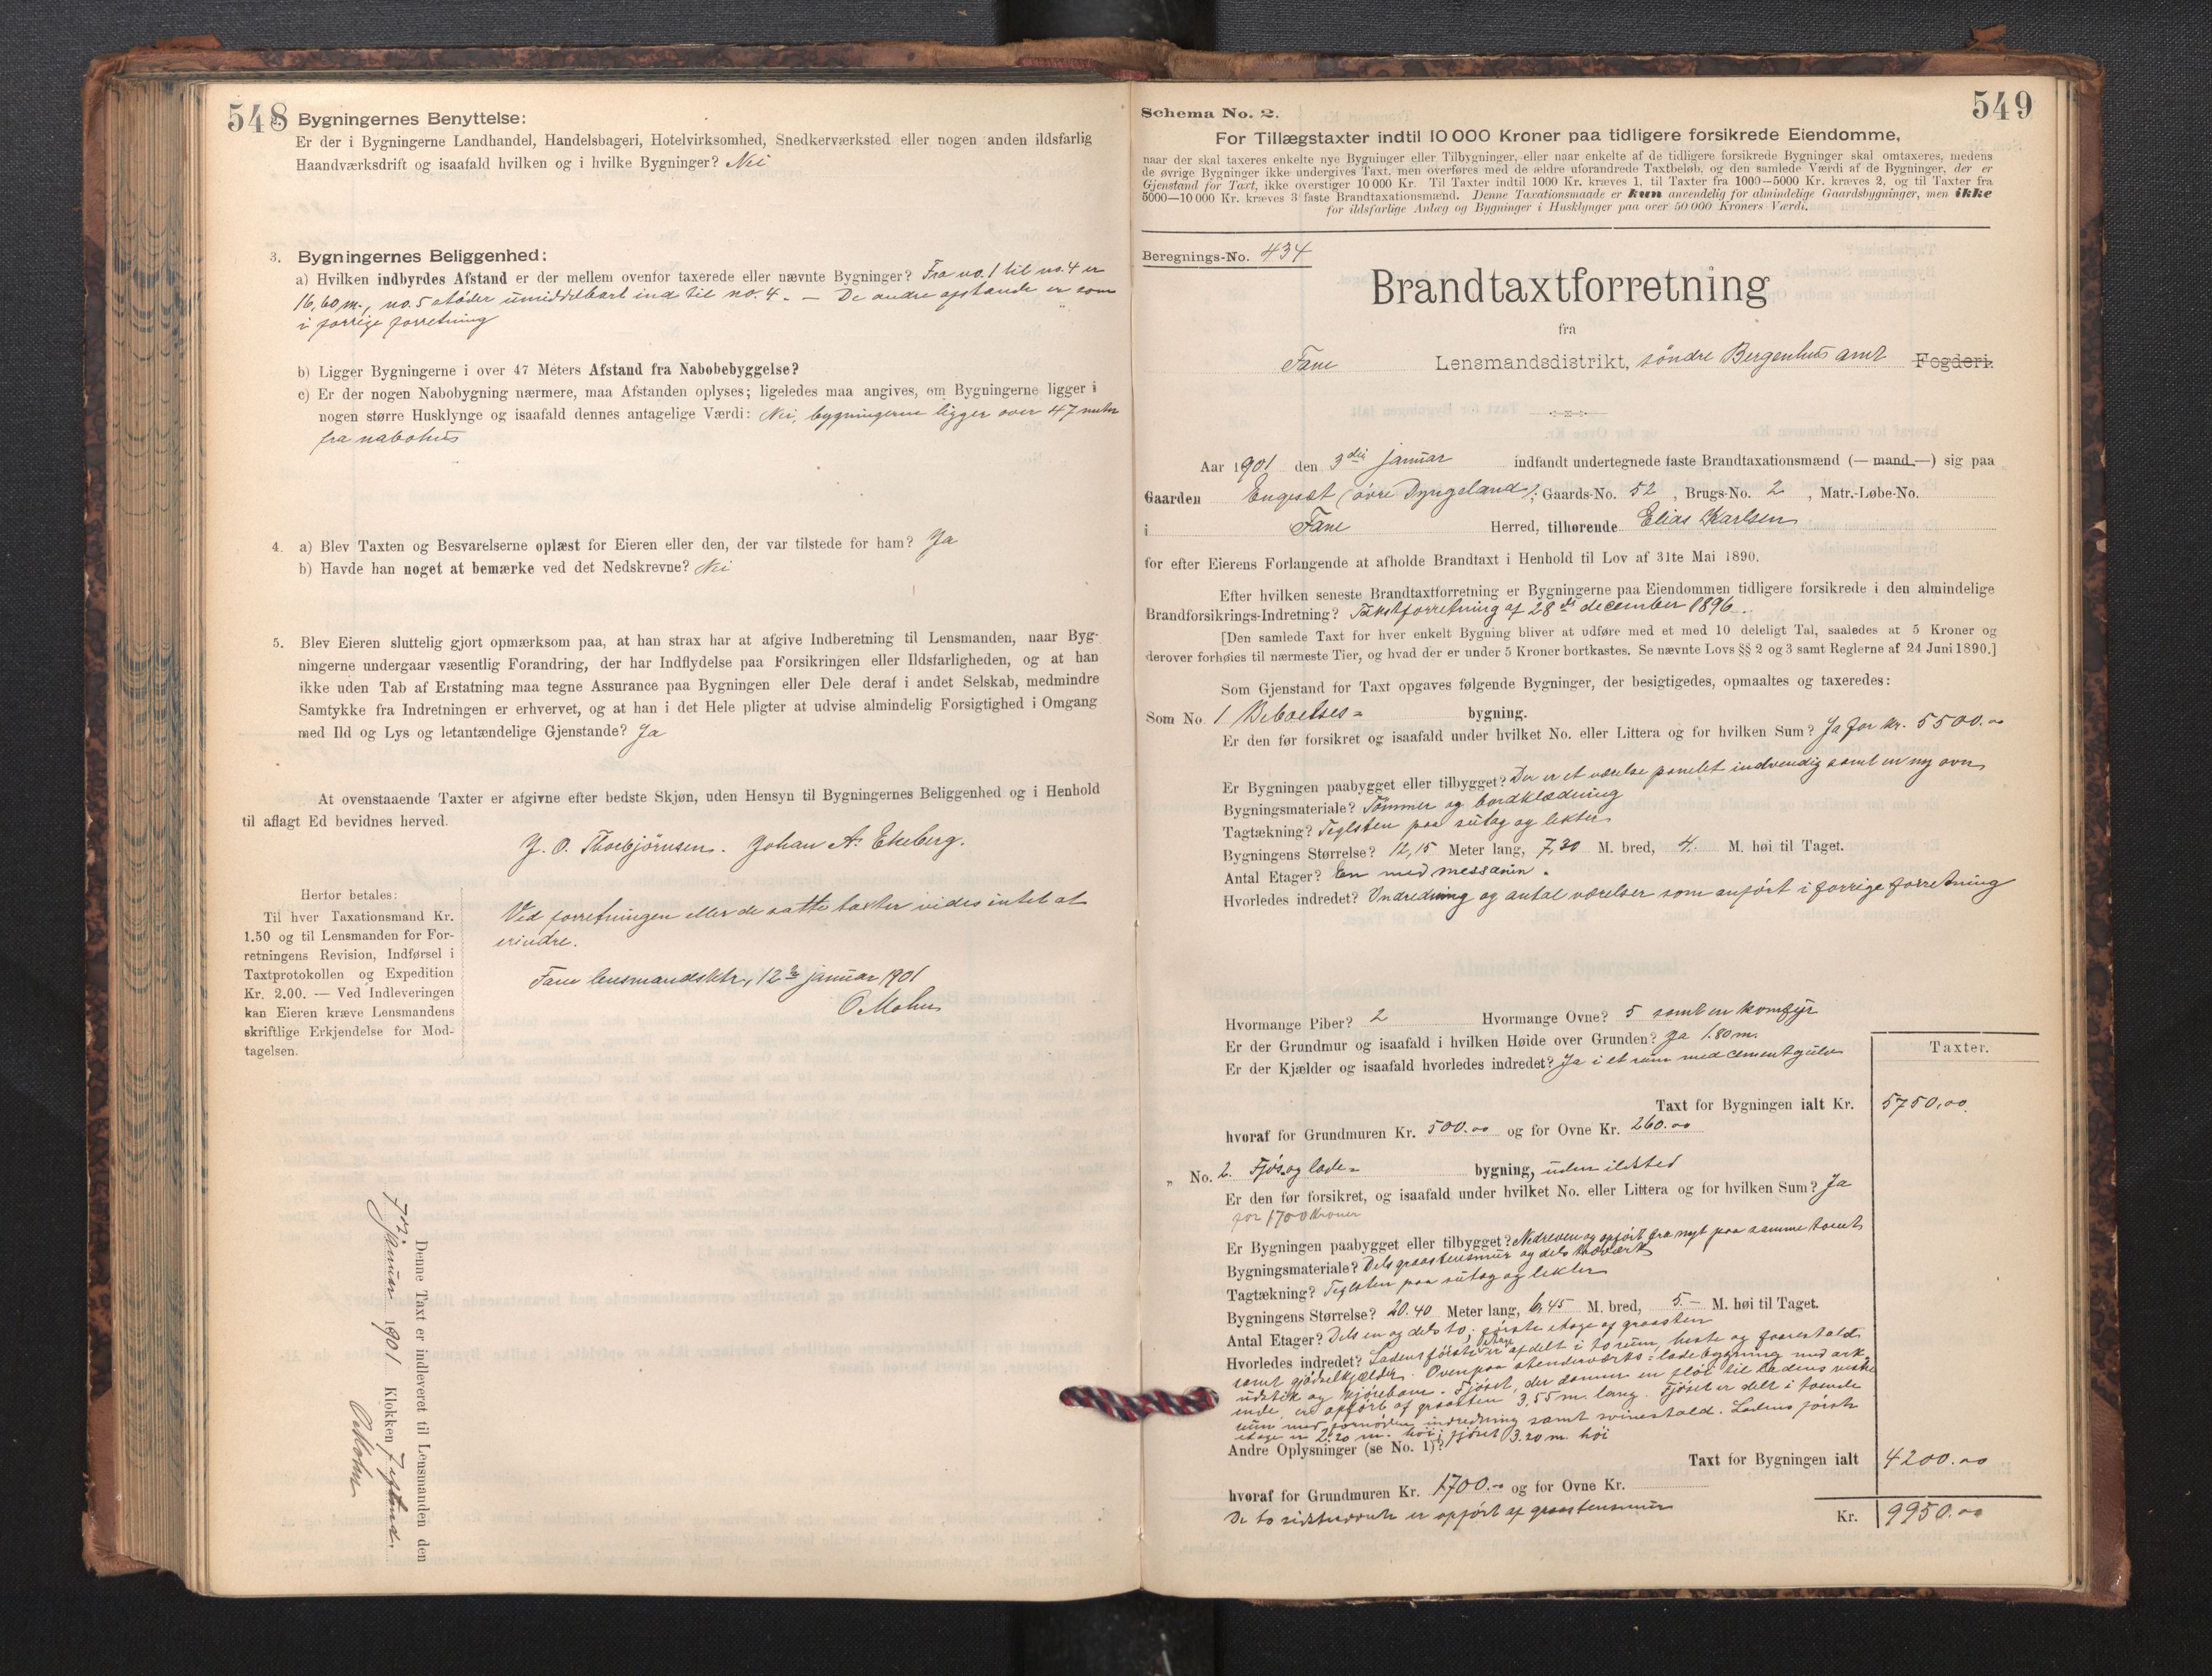 548 Bygningernes Benyttelse:
Er der i Bygningerne Landhandel, Handelsbageri, Hotelvirksomhed, Snedkerværksted eller nogen anden ildsfarlig
Haandværksdrift og isaafald hvilken og i hvilke Bygninger? Nei
3. Bygningernes Beliggenhed:
a) Hvilken indbyrdes Afstand er der mellem ovenfor taxerede eller nævnte Bygninger? Fra no. 1 til no. 4 er
16,60 m., no. 5 støder umiddelbart ind til no. 4. — De andre afstande er som
i forrige forretning
b) Ligger Bygningerne i over 47 Meters Afstand fra Nabobebyggelse?
c) Er der nogen Nabobygning nærmere, maa Afstanden oplyses; ligeledes maa angives, om Bygningerne ligger i
nogen større Husklynge og isaafald dennes antagelige Værdi: Nei, bygningerne ligger over 47 meter
fra nabohus
4. a) Blev Taxten og Besvarelserne oplæst for Eieren eller den, der var tilstede for ham? Ja
b) Havde han noget at bemærke ved det Nedskrevne? Nei
5. Blev Eieren sluttelig gjort opmærksom paa, at han strax har at afgive Indberetning til Lensmanden, naar Byg-
ningerne undergaar væsentlig Forandring, der har Indflydelse paa Forsikringen eller Ildsfarligheden, og at han
ikke uden Tab af Erstatning maa tegne Assurance paa Bygningen eller Dele deraf i andet Selskab, medmindre
Samtykke fra Indretningen er erhvervet, og at han i det Hele pligter at udvise almindelig Forsigtighed i Omgang
med Ild og Lys og letantændelige Gjenstande? Ja
At ovenstaaende Taxter er afgivne efter bedste Skjøn, uden Hensyn til Bygningernes Beliggenhed og i Henhold
til aflagt Ed bevidnes herved.
J. O. Thorbjørnsen. Johan A. Ekeberg.
Herfor betales:
Til hver Taxationsmand Kr.
1.50 og til Lensmanden for For-
retningens Revision, Indførsel i
Taxtprotokollen og Expedition
Kr. 2.00. — Ved Indleveringen
kan Eieren kræve Lensmandens
skriftlige Erkjendelse for Mod-
tagelsen.
Ved forretningen eller de satte taxter vides intet at
erindre.
Fane lensmandsktr, 12te januar 1901
O Mohn
Denne Taxt er indleveret til Lensmanden den
7de Januar 1901 Klokken 7 eftmd.
O Mohn
549
Schema No. 2.
For Tillægstaxter indtil 10 000 Kroner paa tidligere forsikrede Eiendomme,
naar der skal taxeres enkelte nye Bygninger eller Tilbygninger, eller naar enkelte af de tidligere forsikrede Bygninger skal omtaxeres, medens
de øvrige Bygninger ikke undergives Taxt, men overføres med de ældre uforandrede Taxtbeløb, og den samlede Værdi af de Bygninger, der er
Gjenstand for Taxt, ikke overstiger 10 000 Kr. Til Taxter indtil 1000 Kr. kræves 1, til Taxter fra 1000—5000 Kr. kræves 2, og til Taxter fra
5000—10 000 Kr. kræves 3 faste Brandtaxationsmænd. Denne Taxationsmaade er kun anvendelig for almindelige Gaardsbygninger, men ikke
for ildsfarlige Anlæg og Bygninger i Husklynger paa over 50 000 Kroners Værdi.
Beregnings-No. 434
Brandtaxtforretning
fra
Fane Lensmandsdistrikt, søndre Bergenhus amt Fogderi.
Aar 1901 den 3die januar indfandt undertegnede faste Brandtaxationsmænd (—mand—) sig paa
Gaarden Engesæt (øvre Dyngeland); Gaards-No. 52, Brugs-No. 2, Matr.-Løbe-No.
i Fane Herred, tilhørende Elias Karlsen
for efter Eierens Forlangende at afholde Brandtaxt i Henhold til Lov af 31te Mai 1890.
Efter hvilken seneste Brandtaxtforretning er Bygningerne paa Eiendommen tidligere forsikrede i den almindelige
Brandforsikrings-Indretning? Takstforretning af 28de december 1896.
[Den samlede Taxt for hver enkelt Bygning bliver at udføre med et med 10 deleligt Tal, saaledes at 5 Kroner og
derover forhøies til nærmeste Tier, og hvad der er under 5 Kroner bortkastes. Se nævnte Lovs §§ 2 og 3 samt Reglerne af 24 Juni 1890.]
Som Gjenstand for Taxt opgaves følgende Bygninger, der besigtigedes, opmaaltes og taxeredes:
Som No. 1 Beboelses= bygning.
Er den før forsikret og isaafald under hvilket No. eller Littera og for hvilken Sum? Ja for kr. 5500.00
Er Bygningen paabygget eller tilbygget? Der er et værelse panelet indvendig samt en ny ovn
Bygningsmateriale? Tømmer og bordklædning
Tagtækning? Teglsten paa sutag og lekter
Bygningens Størrelse? 12,15 Meter lang, 7,30 M. bred, 4. M. høi til Taget.
Antal Etager? En med messanin.
Hvorledes indredet? Indredning og antal værelser som anført i forrige forretning
Hvormange Piber? 2 Hvormange Ovne? 5 samt en komfyr
Er der Grundmur og isaafald i hvilken Høide over Grunden? Ja 1.80 m.
Er der Kjælder og isaafald hvorledes indredet? Ja i et rum med cementgulv
Taxter.
Taxt for Bygningen ialt Kr. 5750,00
hvoraf for Grundmuren Kr. 500.00 og for Ovne Kr. 260.00
„ No. 2. Fjøs og lade= bygning, uden ildsted
Er den før forsikret, og isaafald under hvilket No. eller Littera og for hvilken Sum? Ja
for 1700 Kroner
Er Bygningen paabygget eller tilbygget? Nedreven og opført fra nyt paa samme tomt
Bygningsmateriale? Dels graastensmur og dels
Tagtækning? Teglsten paa sutag og lekter
Bygningens Størrelse? 20.40 Meter lang, 6,45 M. bred, 5.— M. høi til Taget.
Antal Etager? Dels en og dels to; første etage af graasten
Hvorledes indredet? Ladens første etage er afdelt i to rum, heste og faarestald
samt gjødselkjælder. Ovenpaa stenderværks=ladebygning med ark,
udstik og kjørebom. Fjøset, der danner en fløi til ladens vestre
ende, er opført af graasten 3,55 m. lang. Fjøset er delt i tvende
rum med fornøden indredning samt svinestald. Ladens første
etage er 2.20 m. høi; fjøset 3.20 m. høi
Andre Oplysninger (se No. 1)?
Taxt for Bygningen ialt 4200.00
hvoraf for Grundmuren Kr. 1700.00 og for Ovne Kr.
De to er opført af graastensmur
Kr. 9950.00